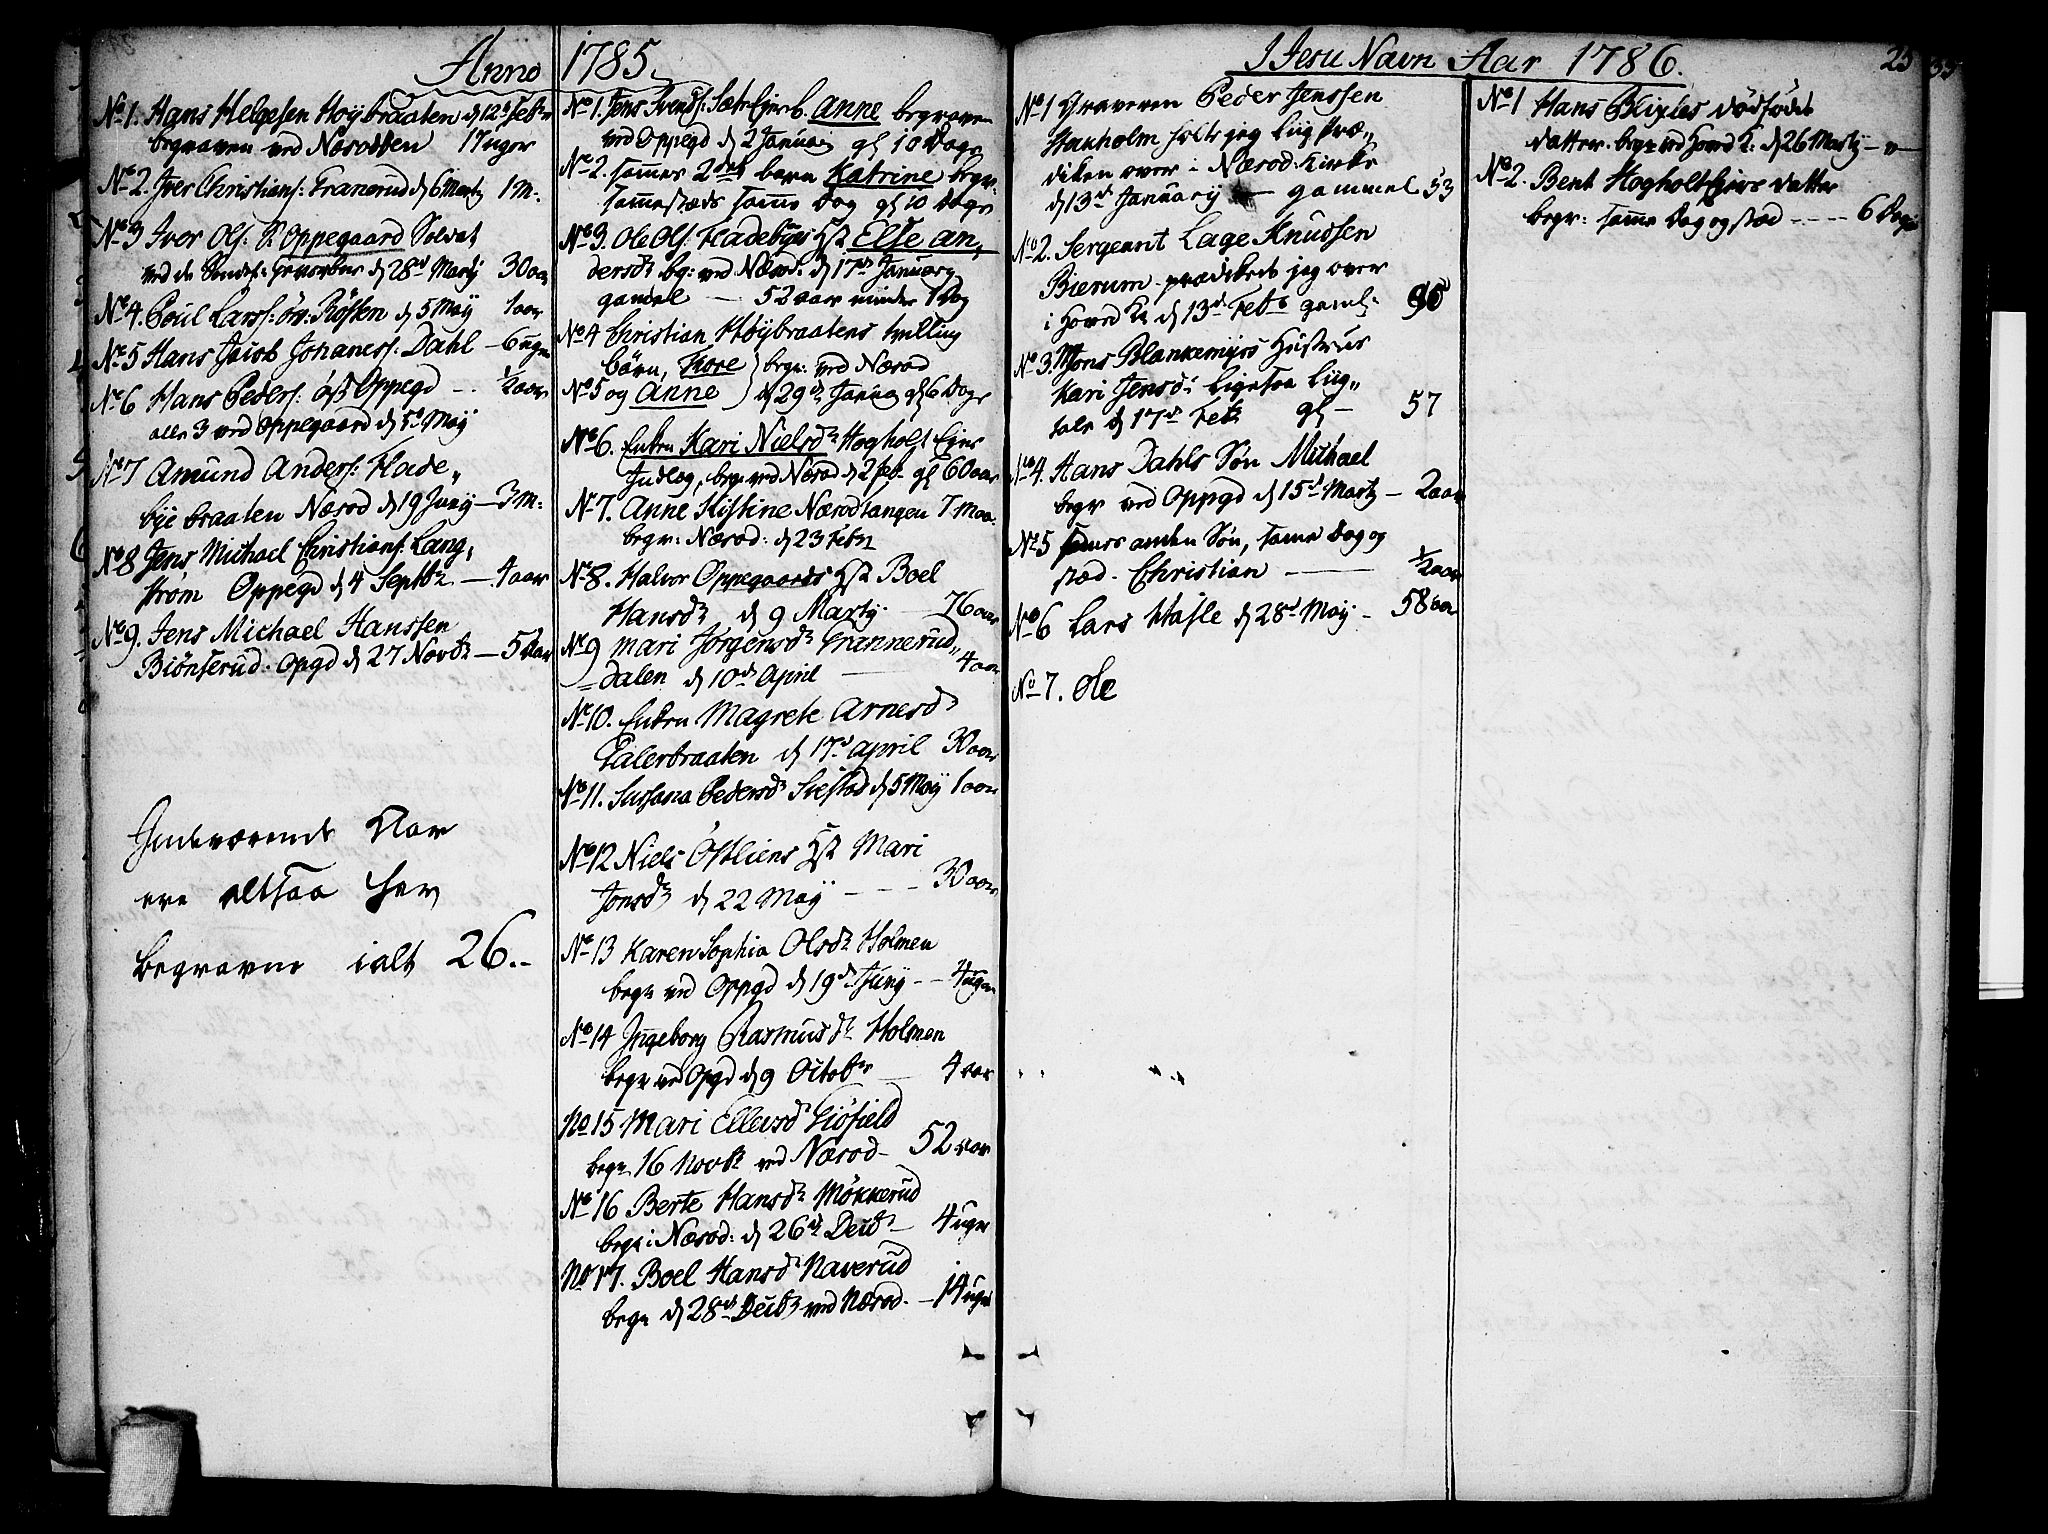 Anno 1785.
No 1. Hans Helgesen Høybraaten d 12te Febr
begraven ved Næsodden 17 uger
No 2. Iver Christians: Tranerud d 6 Marty 1 M.
No 3 Iver Ols: Oppegaard Soldat
d 28d Marty 30 aar
No 4. Poul Larss: öv: Rösten d 5 May 1 aar
No 5 Hans Jacob Johaness: Dahl – 6 uger
No 6 Hans Peders: Oppegd - - ½ aar
alle 3 ved Oppegaard d 5te May
No 7 Amund Anders: Flade„
bye braaten Næsod d 19 Juny – 3 M.
No 8 Jens Michael Christians: Lang,
strøm Oppegd d 4 Septbr – 4 aar
No 9. Jens Michael Hanssen
Biönserud. Opgd d 27 Novbr – 5 aar
Indeværende Aar
ere altsaa her
begravne ialt 26.-
No 1. Jens Svends: Sætr Eyerb. Anne begraven
ved Oppegd d 2 January gl 10 Dage
No 2. sammes 2det barn Katrine begr:
sammestæds samme Dag gl 10 Dage
No 3. Ole Ols: Fladebyes Hst Else An„
dersdr bg: ved Næsod: d 17de January
gamel — 52 aar minder 1 Dag
No 4 Christian Høybraatens tvilling
börn, Tore begr: ved Næsod
No 5 og Anne d 29de Janua gl 6 Dage
No 6. Enken Kari Nielsdr Hogholt Eyes
Indlæg, begr ved Næsod d 2 feb. gl 60 aar
No 7. Anne Kistine Næsodtangen 7 Maa.
begr: Næsod: d 23 Febr
No 8. Halvor Oppegaards Hst Boel
Hansdr d 9 Marty — 76 aar
No 9 Mari Jörgensdr Trannerud„
Dalen d 10de April — 4 aar
No 10. Enken Magrete Arnesdr
Ealerbraaten d 17d April 30 aar
No 11. Susana Pedersdr Siestad d 5 May 1 aar
No 12 Niels Östliens Hst Mari
Jonsdr d 22 May - - - 30 aar
No 13 Karen Sophia Olsdr Holmen
begr ved Oppgd d 19de Juny - - 4 uger
No 14 Ingeborg Rasmusdr Holmen
begr ved Opgd d 9 Octobr — 4 aar
No 15 Mari Ellevsdr Giöfield
begr 16 Novbr ved Næsod – 52 aar
No 16 Berte Hansdr Møkkerud
begr i Næsod: d 26de Decbr – 4 uger
No 17. Boel Hansdr Naverud
begr d 28de Decbr ved Næsod. – 14 uger
I Jesu Navn Aar 1786.
25
No 1 Graveren Peder Jenssen
Stenholm holte jeg Liig Præ„
diken over i Næsod: Kirke
d 13de January — gammel 53
No 2. Sergeant Lage Knudssen
Bierum prædikede jeg over
i Hoved K: d 13de Febr gaml:
No 3. Mons Blankemyrs Hustrue
Kari Jensdr ligesaa Liig„
tale d 17de Febr gl – 57
No 4. Hans Dahls Sön Michael
begr ved Oppgd d 15de Marty – 2 aar
No 5 sammes anden Sön, samme Dag og
stæd. Christian — ½ aar
No 6 Lars Hasle d 28de May – 58 aar
No 7. Ole
No 1 Hans Blixles dödfödt
datter begr ved Hoved K: d 26 Marty – „ –
No 2. Bent Hogholt Eyers datter
begr: samme Dag og stæd - - - - 6 Dage